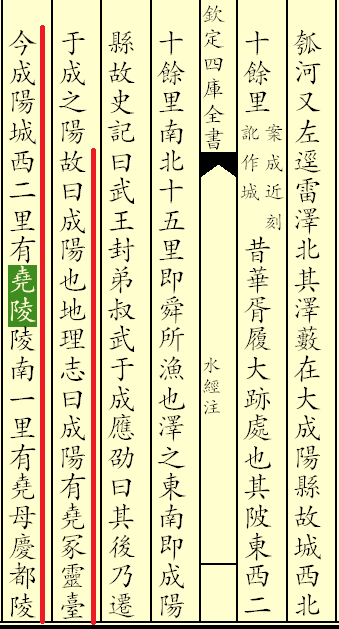 瓠河又左逕雷澤北其澤藪在大成陽縣故城西北
十餘里案成近刻訛作城昔華胥履大跡處也其陂東西二
欽定四庫全書
水經注
十餘里南北十五里即舜所漁也澤之東南即成陽
縣故史記曰武王封弟叔武于成應劭曰其後乃遷
于成之陽故曰成陽也地理志曰成陽有堯冢靈臺
今成陽城西二里有堯陵陵南一里有堯母慶都陵